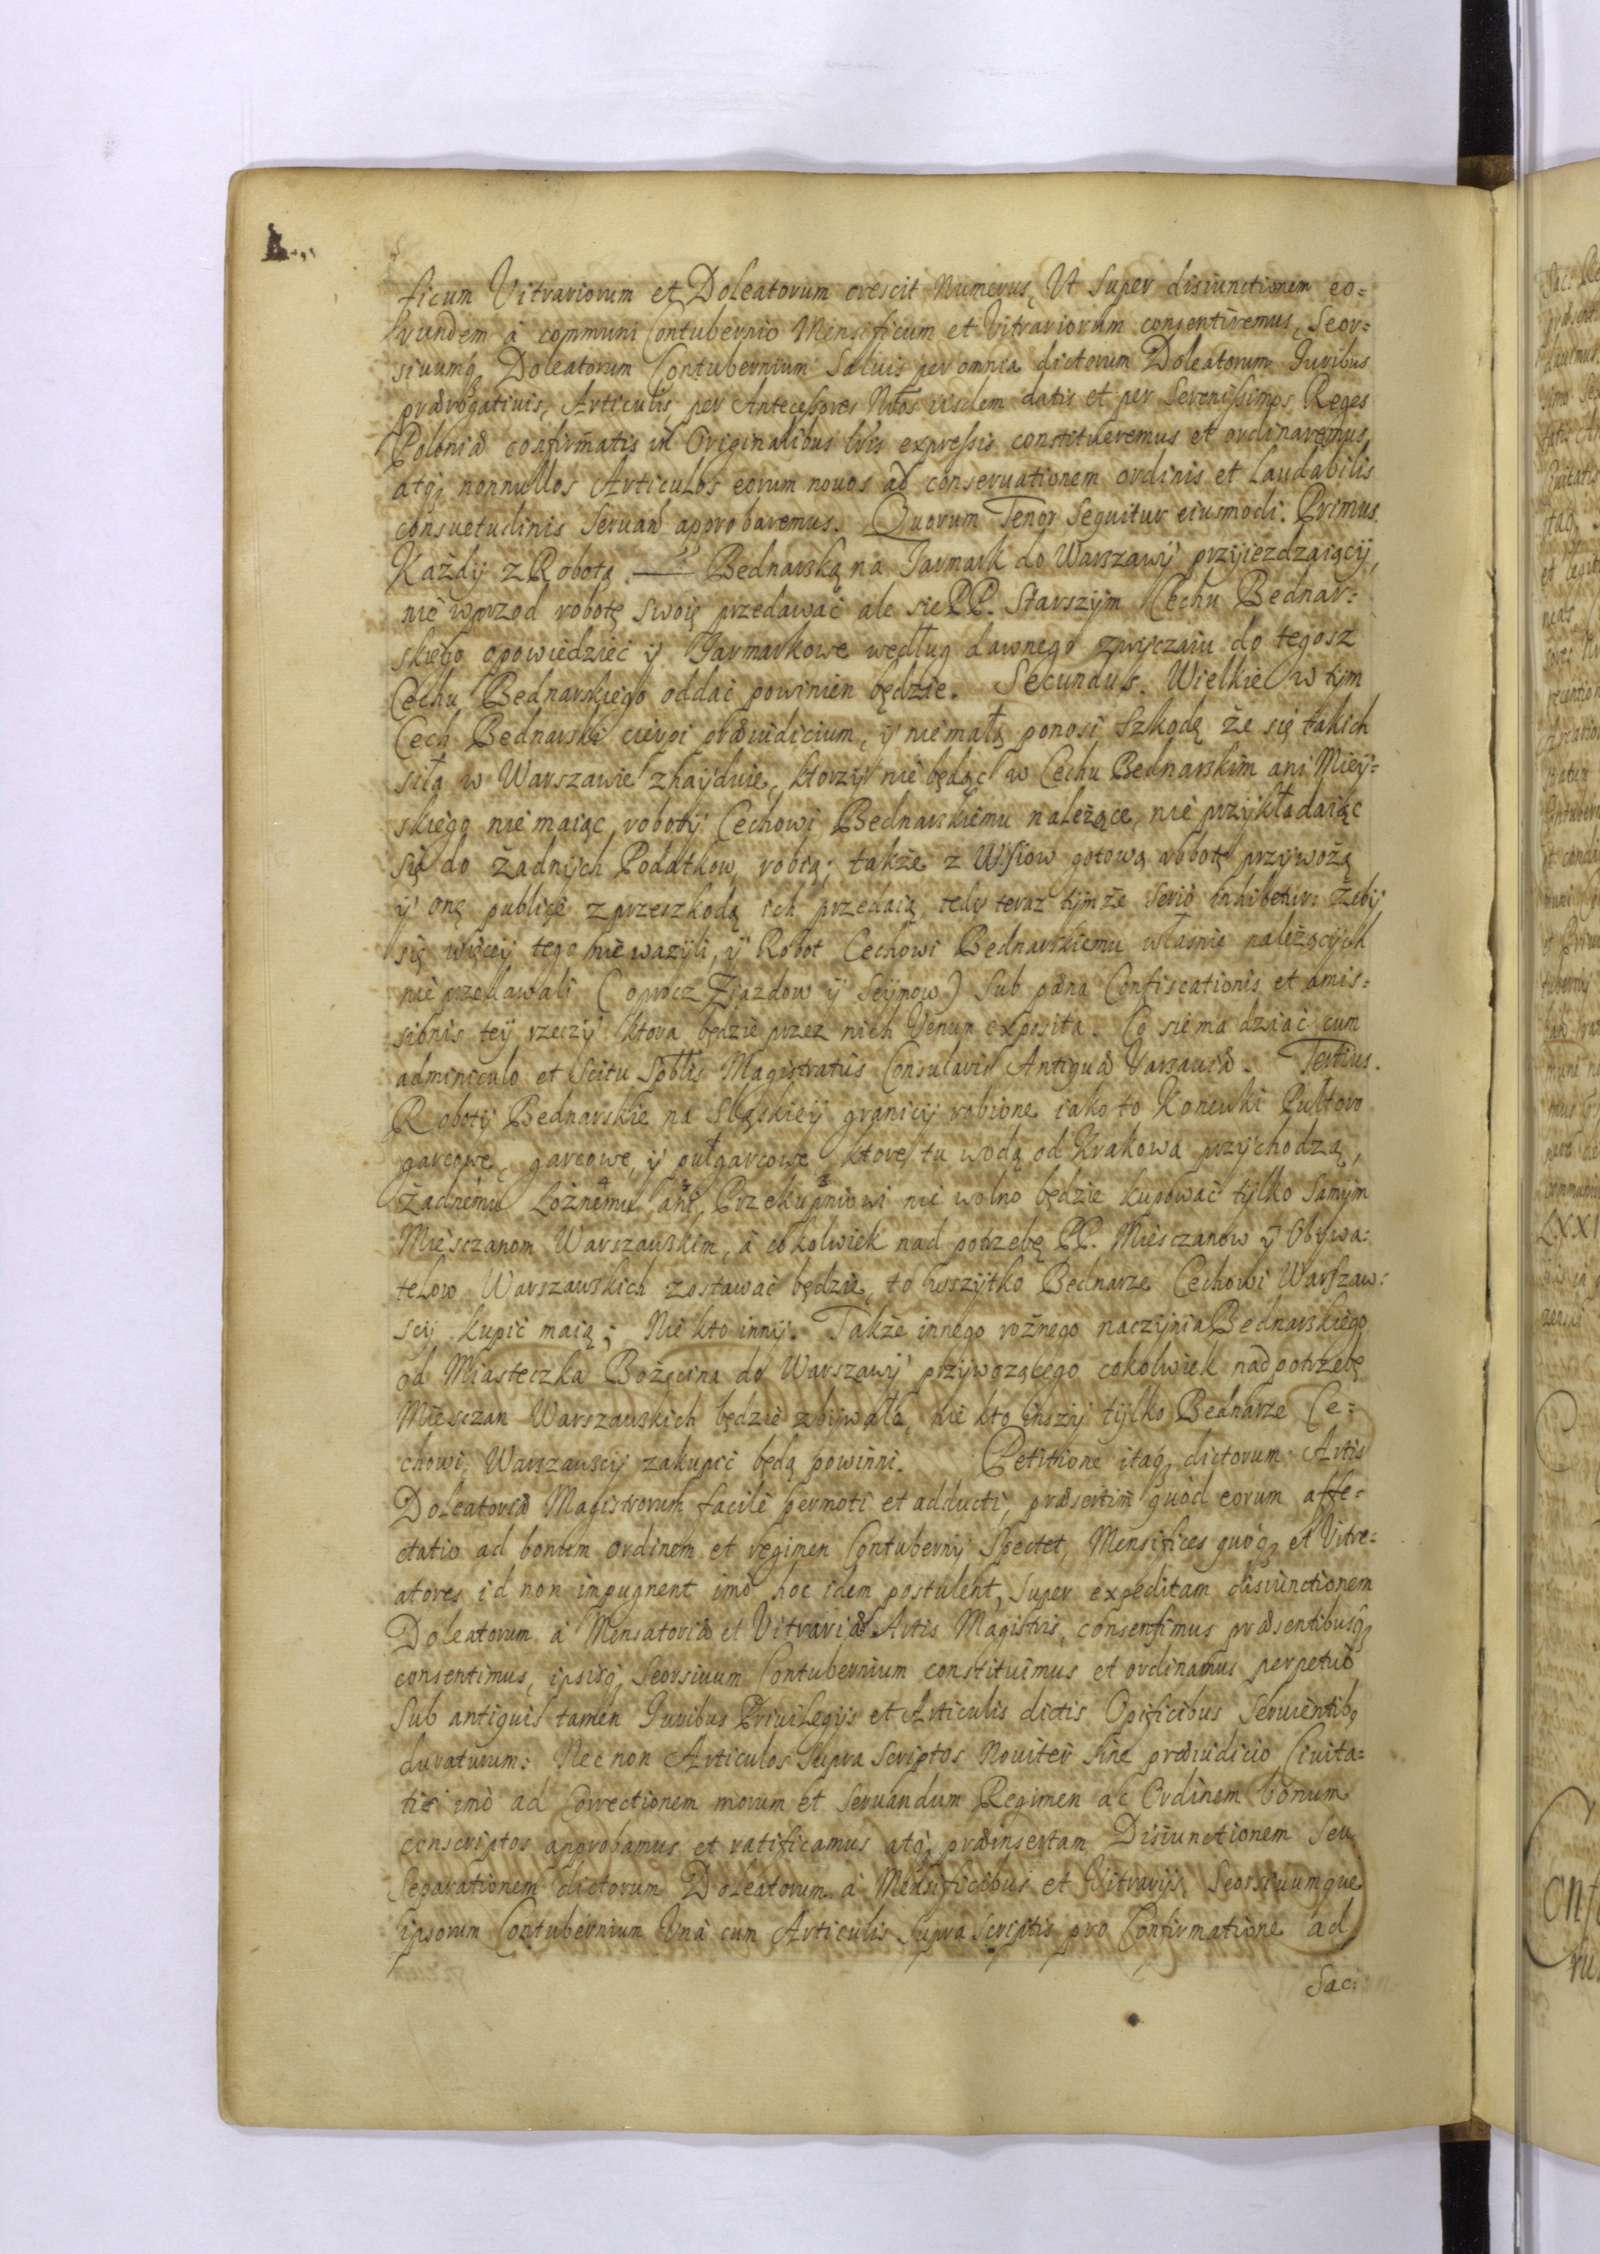 ficum Vitrariorum et Doleatorum crescit Numerus, Ut super disiunctionem eo=
rundem à communi Contubernio Mensificum et Vitrariorum consentiremus, Seor=
siuumq, Doleatorum Contubernium Saluis per omnia dictorum Doleatorum Iuribus
prærogatiuis, Articulis per Antecessores Nros iisdem datis et per Serenissimos Reges
Poloniæ confirmatis in Originalibus lris expressis constitueremus et ordinaremus,
atq, nonnullos Articulos eorum nouos ad conseruationem ordinis et laudabilis
consuetudinis Seruan approbaremus. Quorum Tenor Sequitur eiusmodi. Primus.
Każdÿ z Robotą Bednarską na Jarmark do Warszawÿ przÿiezdzaiącÿ,
nie wprzod robotę swoię przedawać ale sie PP. Starszÿm Cechu Bednar=
skiego opowiedzieć ÿ Jarmarkowe według dawnego zwyczaiu do tegosz
Cechu Bednarskiego oddać powinien będzie. Secundus. Wielkie w tÿm
Cech Bednarski cierpi præiudicium, ÿ niemałą ponosi szkodę że się takich
siła w Warszawie znaÿduie, ktorzÿ nie będąc w Cechu Bednarskim ani Mieÿ=
skiego nie maiąc, robotÿ Cechowi Bednarskiemu należące, nie przÿkładaiąc
się do żadnÿch Podatkow, robią; także z Wsiow gotową robotę przÿwożą
ÿ onę publicè z przeszkodą ich przedaią, tedÿ teraz tÿmże serio inhibetur: żebÿ
się więceÿ tego nie ważÿli, ÿ Robot Cechowi Bednarskiemu własnie należącÿch
nie przedawali (oprocz Zjazdow ÿ Seÿmow) Sub pæna Confiscationis et amis=
sionis teÿ rzeczÿ ktora będzie przez nich Venun exposita. Co się ma dziać cum
adminiculo et Scitu Spblis Magistratus Consularis Antiquæ Varsauiæ. Tertius.
Robotÿ Bednarskie na Sląskieÿ granicÿ robione iako to Konewki Pułtoro
garcowe, garcowe, ÿ pułgarcowe ktore tu wodą od Krakowa przÿchodzą,
Żadnemu Loznemu ani Przekupniowi nie wolno będzie kupować tÿlko samÿm
Miesczanom Warszawskim, à cokolwiek nad potrzebę PP. Miesczanow ÿ Obÿwa=
telow Warszawskich zostawać będzie, to wszÿtko Bednarze Cechowi Warszaw=
scÿ kupić maią; Nie kto innÿ. Także innego rożnego naczÿnia Bednarskiego
od Miasteczka Bożęcina do Warszawÿ przÿwozącego cokolwiek nad potrzebę
Miesczan Warszawskich będzie zbÿwało, nie kto inszÿ tÿlko Bednarze Ce=
chowi, Warszawscÿ zakupić będą powinni. Petitione itaq, dictorum Artis
Doleatoriæ Magistrorum facilè permoti et adducti, præsertim quòd eorum affe=
ctatio ad bonum ordinem et regimen Contubernÿ Spectet, Mensifices quoq, et Vitre=
atores id non inpugnent imò hoc idem postulent, super expeditam disiunctionem
Doleatorum à Mensatoriæ et Vitrariæ Artis Magistris, consensimus præsentibusq,
consentimus, ipsisq, Seorsiuum Contubernium constituimus et ordinamus perpetuò
Sub antiquis tamen Iuribus Priuilegÿs et Articulis dictis Opificibus Seruientib,
duraturum: Nec non Articulos Supra Scriptos Nouiter Sine præiudicio Ciuita=
tis imò ad Correctionem morum et Seruandum Regimen ac Ordinem bonum
conscriptos approbamus et ratificamus atq, præinsertam Disiunctionem Seu
Separationem dictorum Doleatorum à Mensificibus et Vitrarÿs, Seorsiuumque
ipsorum Contubernium Unà cum Articulis Supra Scriptis pro Confirmatione ad
Sac: